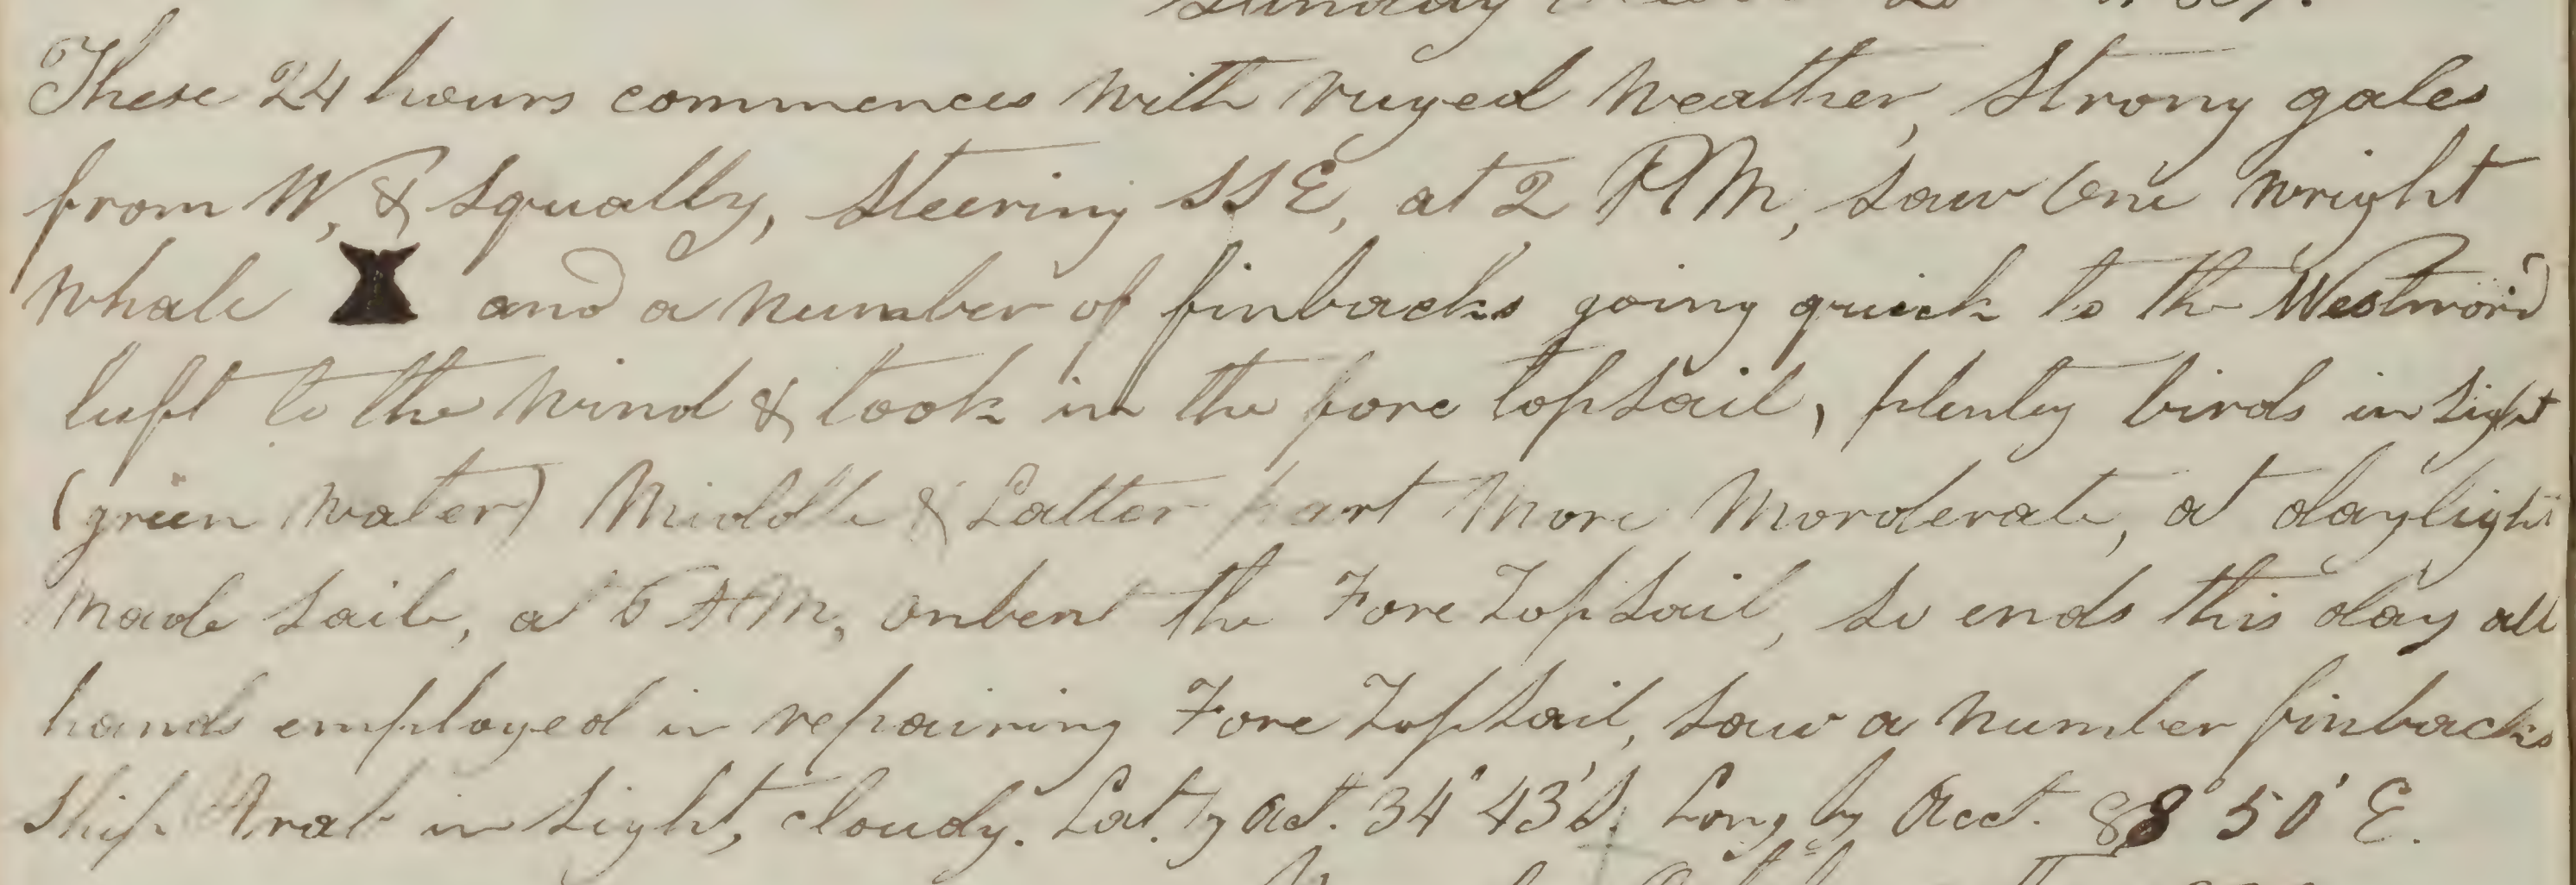 Sunday
These 24 hours commences with ruged weather, Strong gales
from W, & squally, steering SSE, at 2 PM, saw One wright
whale and a number of finbacks going quick to the Westword
luft to the wind & took in the fore topsail, plenty birds in sight
(green water) Middle & Latter part More Morderate, at daylight
made sail, at 6 AM, onbent the Fore Topsail, so ends this day all
hands employed in repairing Fore Topsail, saw a number finbacks
Ship Arab in sight, cloudy. Lat. by act. 34° 43' S. Long by Acct. 88° 50' E.